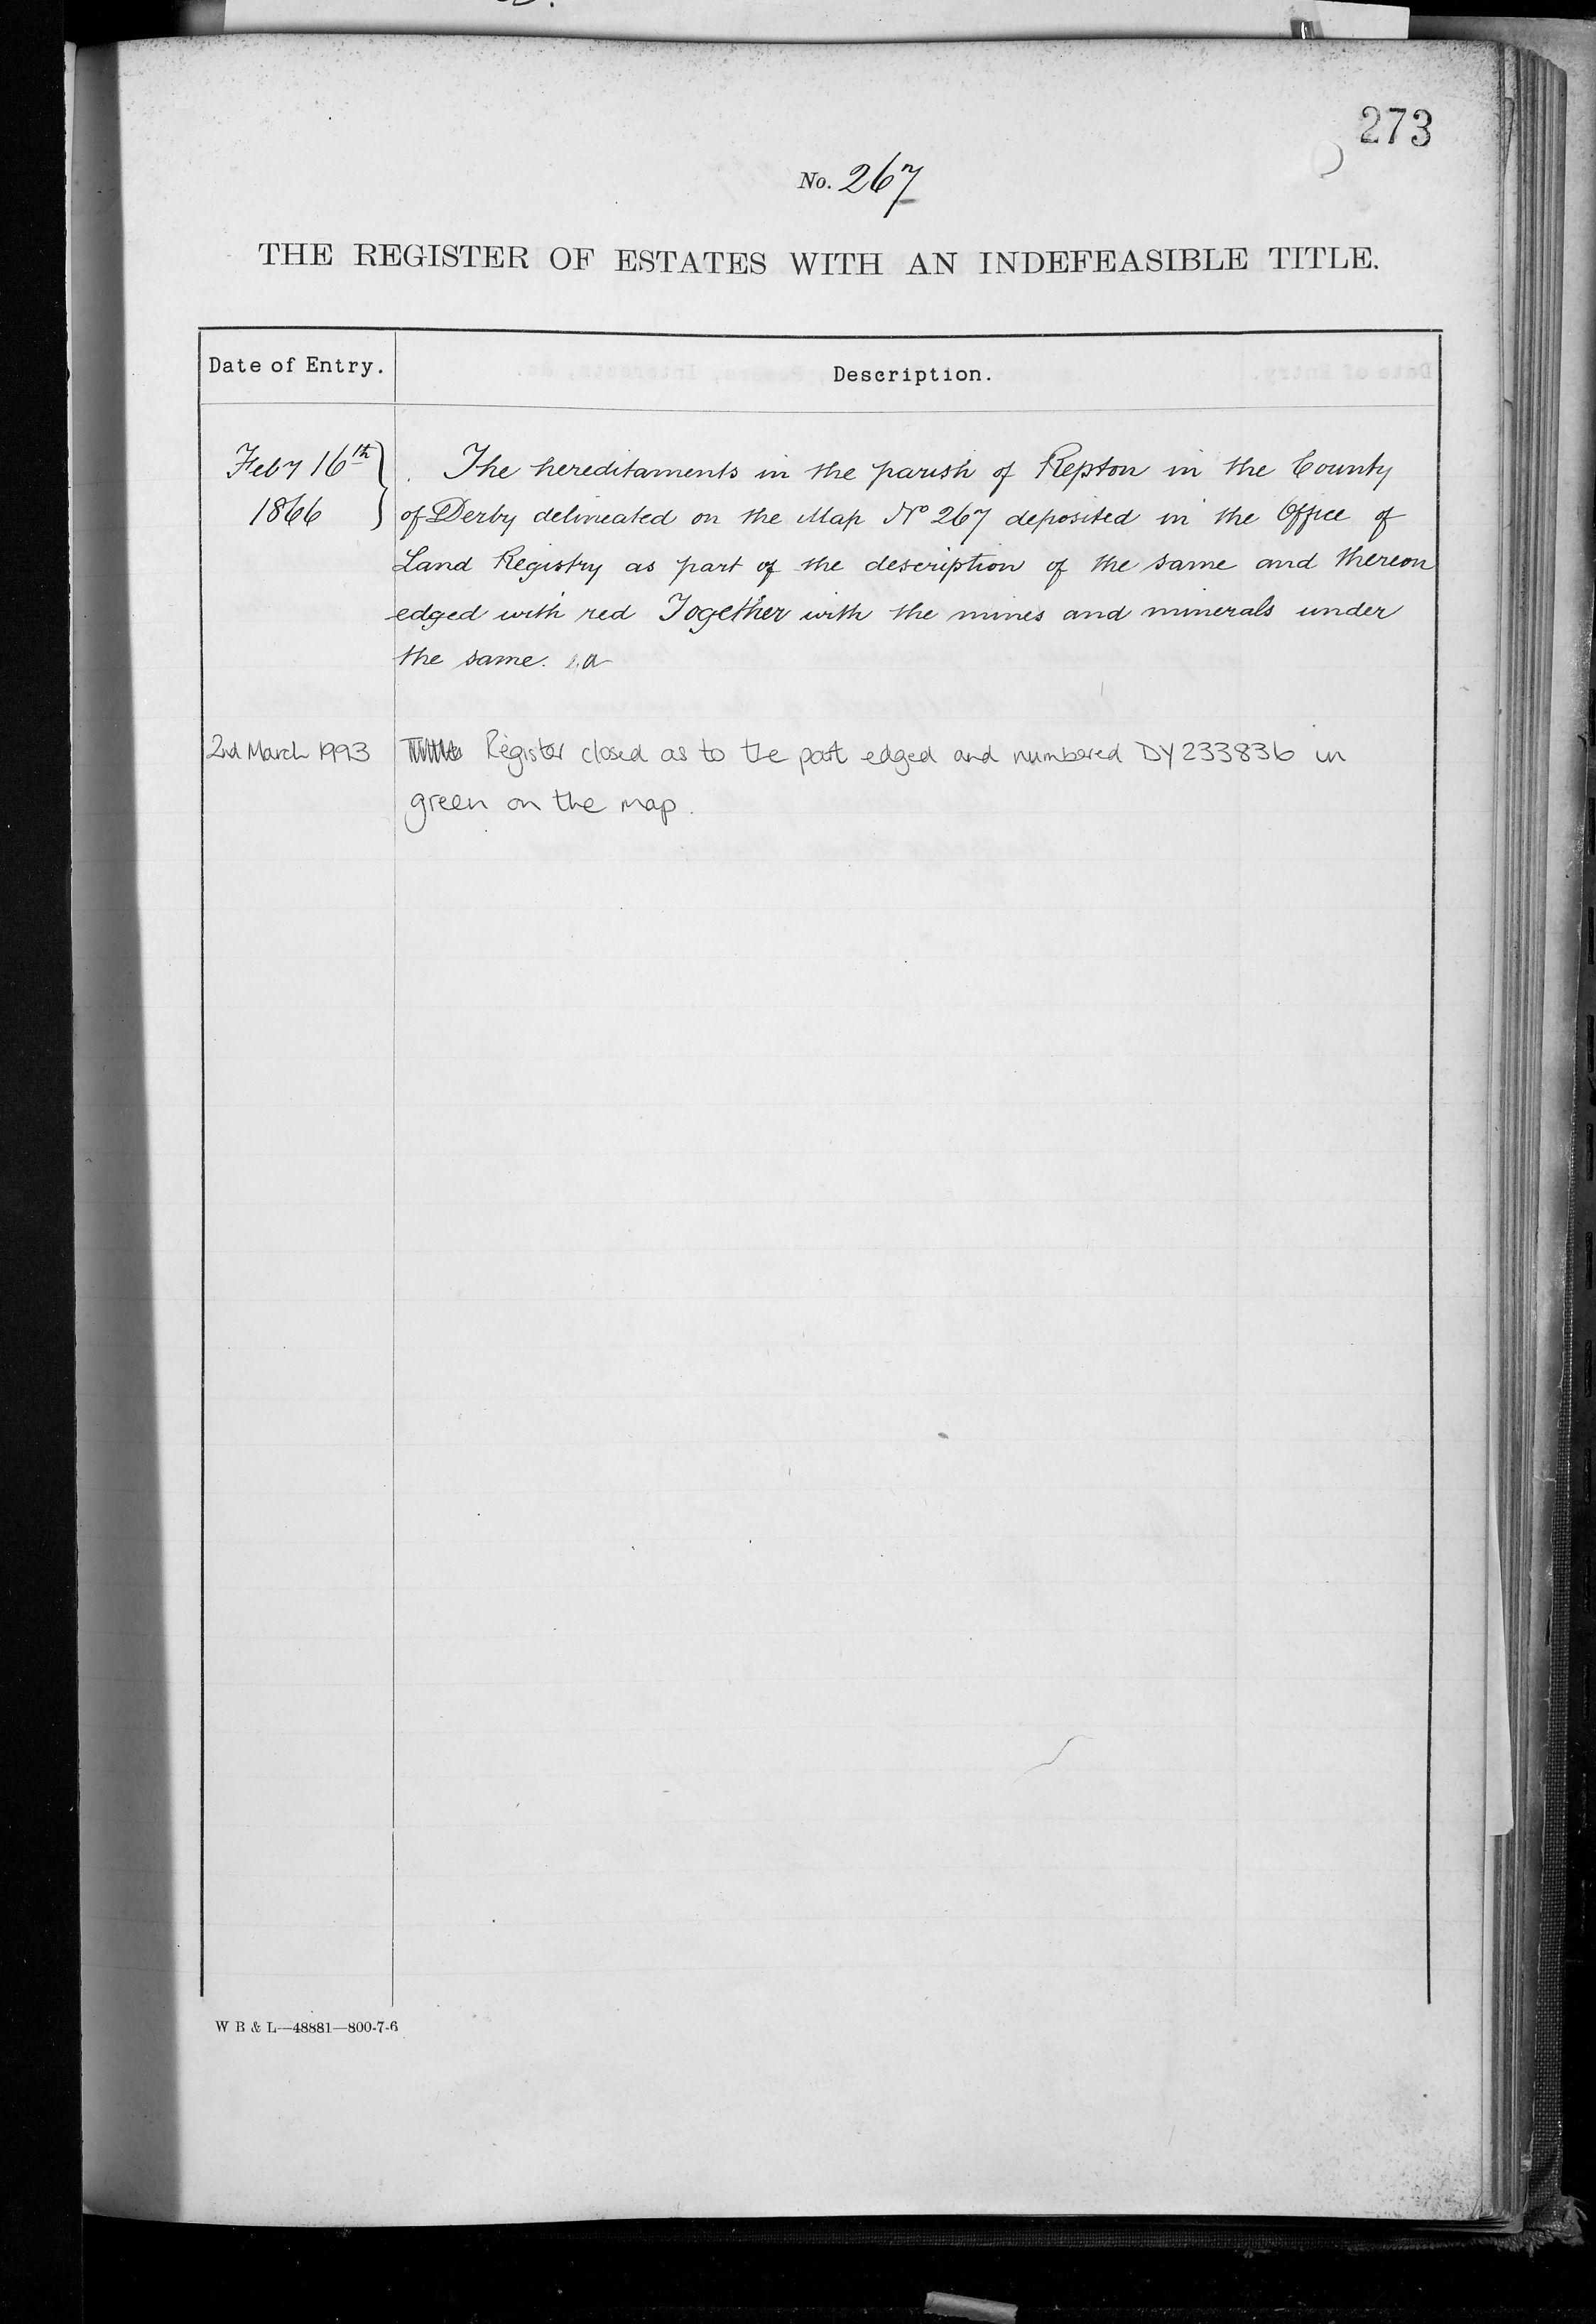 273
No. 267
THE REGISTER OF ESTATES WITH AN INDEFEASIBLE TITLE.
Date of Entry.
Description.
Feby 16th
1866
The hereditaments in the parish of Repton in the County
of Derby delineated on the Map No 267 deposited in the Office of
Land Registry as part of the description of the same and thereon
edged with red Together with the mines and minerals under
the same.
2nd March 1993
Register closed as to the part edged and numbered DY233836 in
green on the map.
W B & L—48881—800-7-6